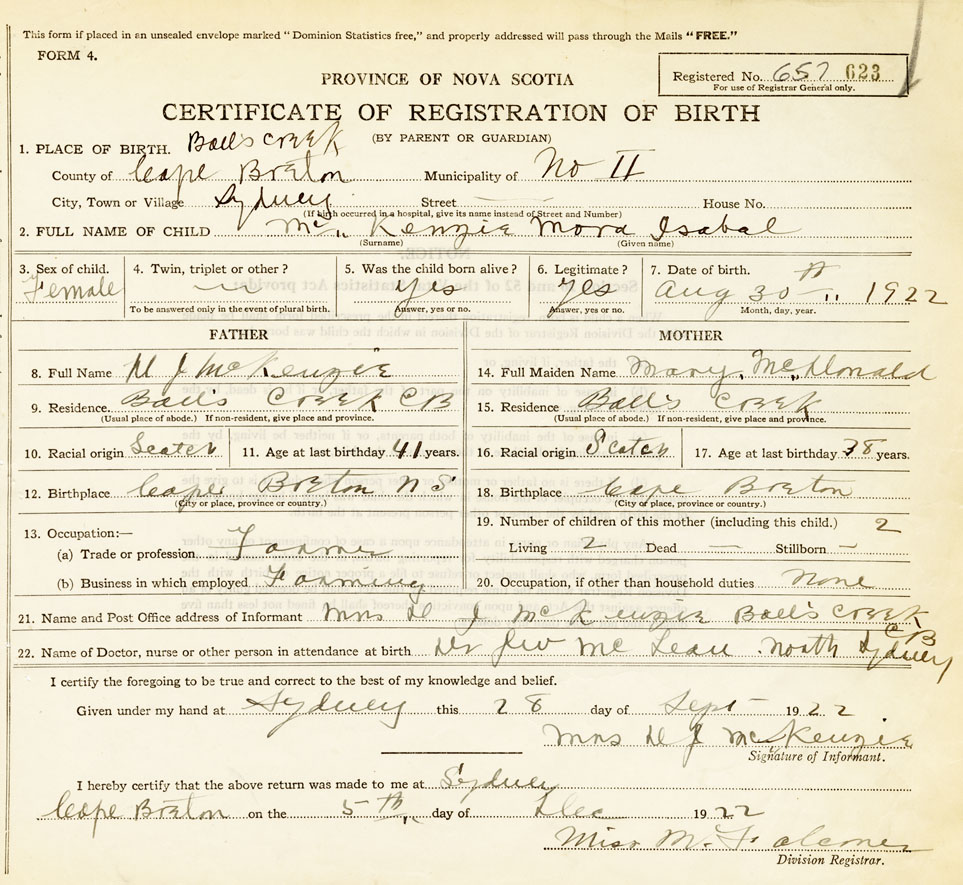 This form if placed in an unsealed envelope marked "Dominion Statistics free," and properly addressed will pass through the Mails "FREE."
FORM 4.
PROVINCE OF NOVA SCOTIA
Registered No. 657 623
For use of Registrar General only.
CERTIFICATE OF REGISTRATION OF BIRTH
(BY PARENT OR GUARDIAN)
1. PLACE OF BIRTH. Ball's Creek
County of Cape Breton Municipality of No II
City, Town or Village Sydney Street — House No.
(If birth occurred in a hospital, give its name instead of Street and Number)
2. FULL NAME OF CHILD Mc Kenzie Mora Isabal
(Surname) (Given name)
3. Sex of child. 4. Twin, triplet or other? 5. Was the child born alive? 6. Legitimate? 7. Date of birth.
Female — Yes Yes Aug 30th 1922
To be answered only in the event of plural birth. Answer, yes or no. Answer, yes or no. Month, day, year.
FATHER MOTHER
8. Full Name J McKenzie 14. Full Maiden Name Mary McDonald
9. Residence. Ball's Creek CB 15. Residence Ball's Creek
(Usual place of abode.) If non-resident, give place and province. (Usual place of abode.) If non-resident, give place and province.
10. Racial origin Scotch 11. Age at last birthday 41 years. 16. Racial origin Scotch 17. Age at last birthday 38 years.
12. Birthplace Cape Breton N S 18. Birthplace Cape Breton
(City or place, province or country.) (City or place, province or country.)
13. Occupation:— 19. Number of children of this mother (including this child.) 2
(a) Trade or profession Farmer Living 2 Dead — Stillborn —
(b) Business in which employed Farming 20. Occupation, if other than household duties None
21. Name and Post Office address of Informant Mrs D J McKenzie Ball's Creek
CB
22. Name of Doctor, nurse or other person in attendance at birth Dr JW McLean North Sydney
I certify the foregoing to be true and correct to the best of my knowledge and belief.
Given under my hand at Sydney this 28 day of Sept 1922
Mrs D J McKenzie
Signature of Informant.
I hereby certify that the above return was made to me at Sydney
Cape Breton on the 5th day of Dec 1922
Miss M. Falconer
Division Registrar.